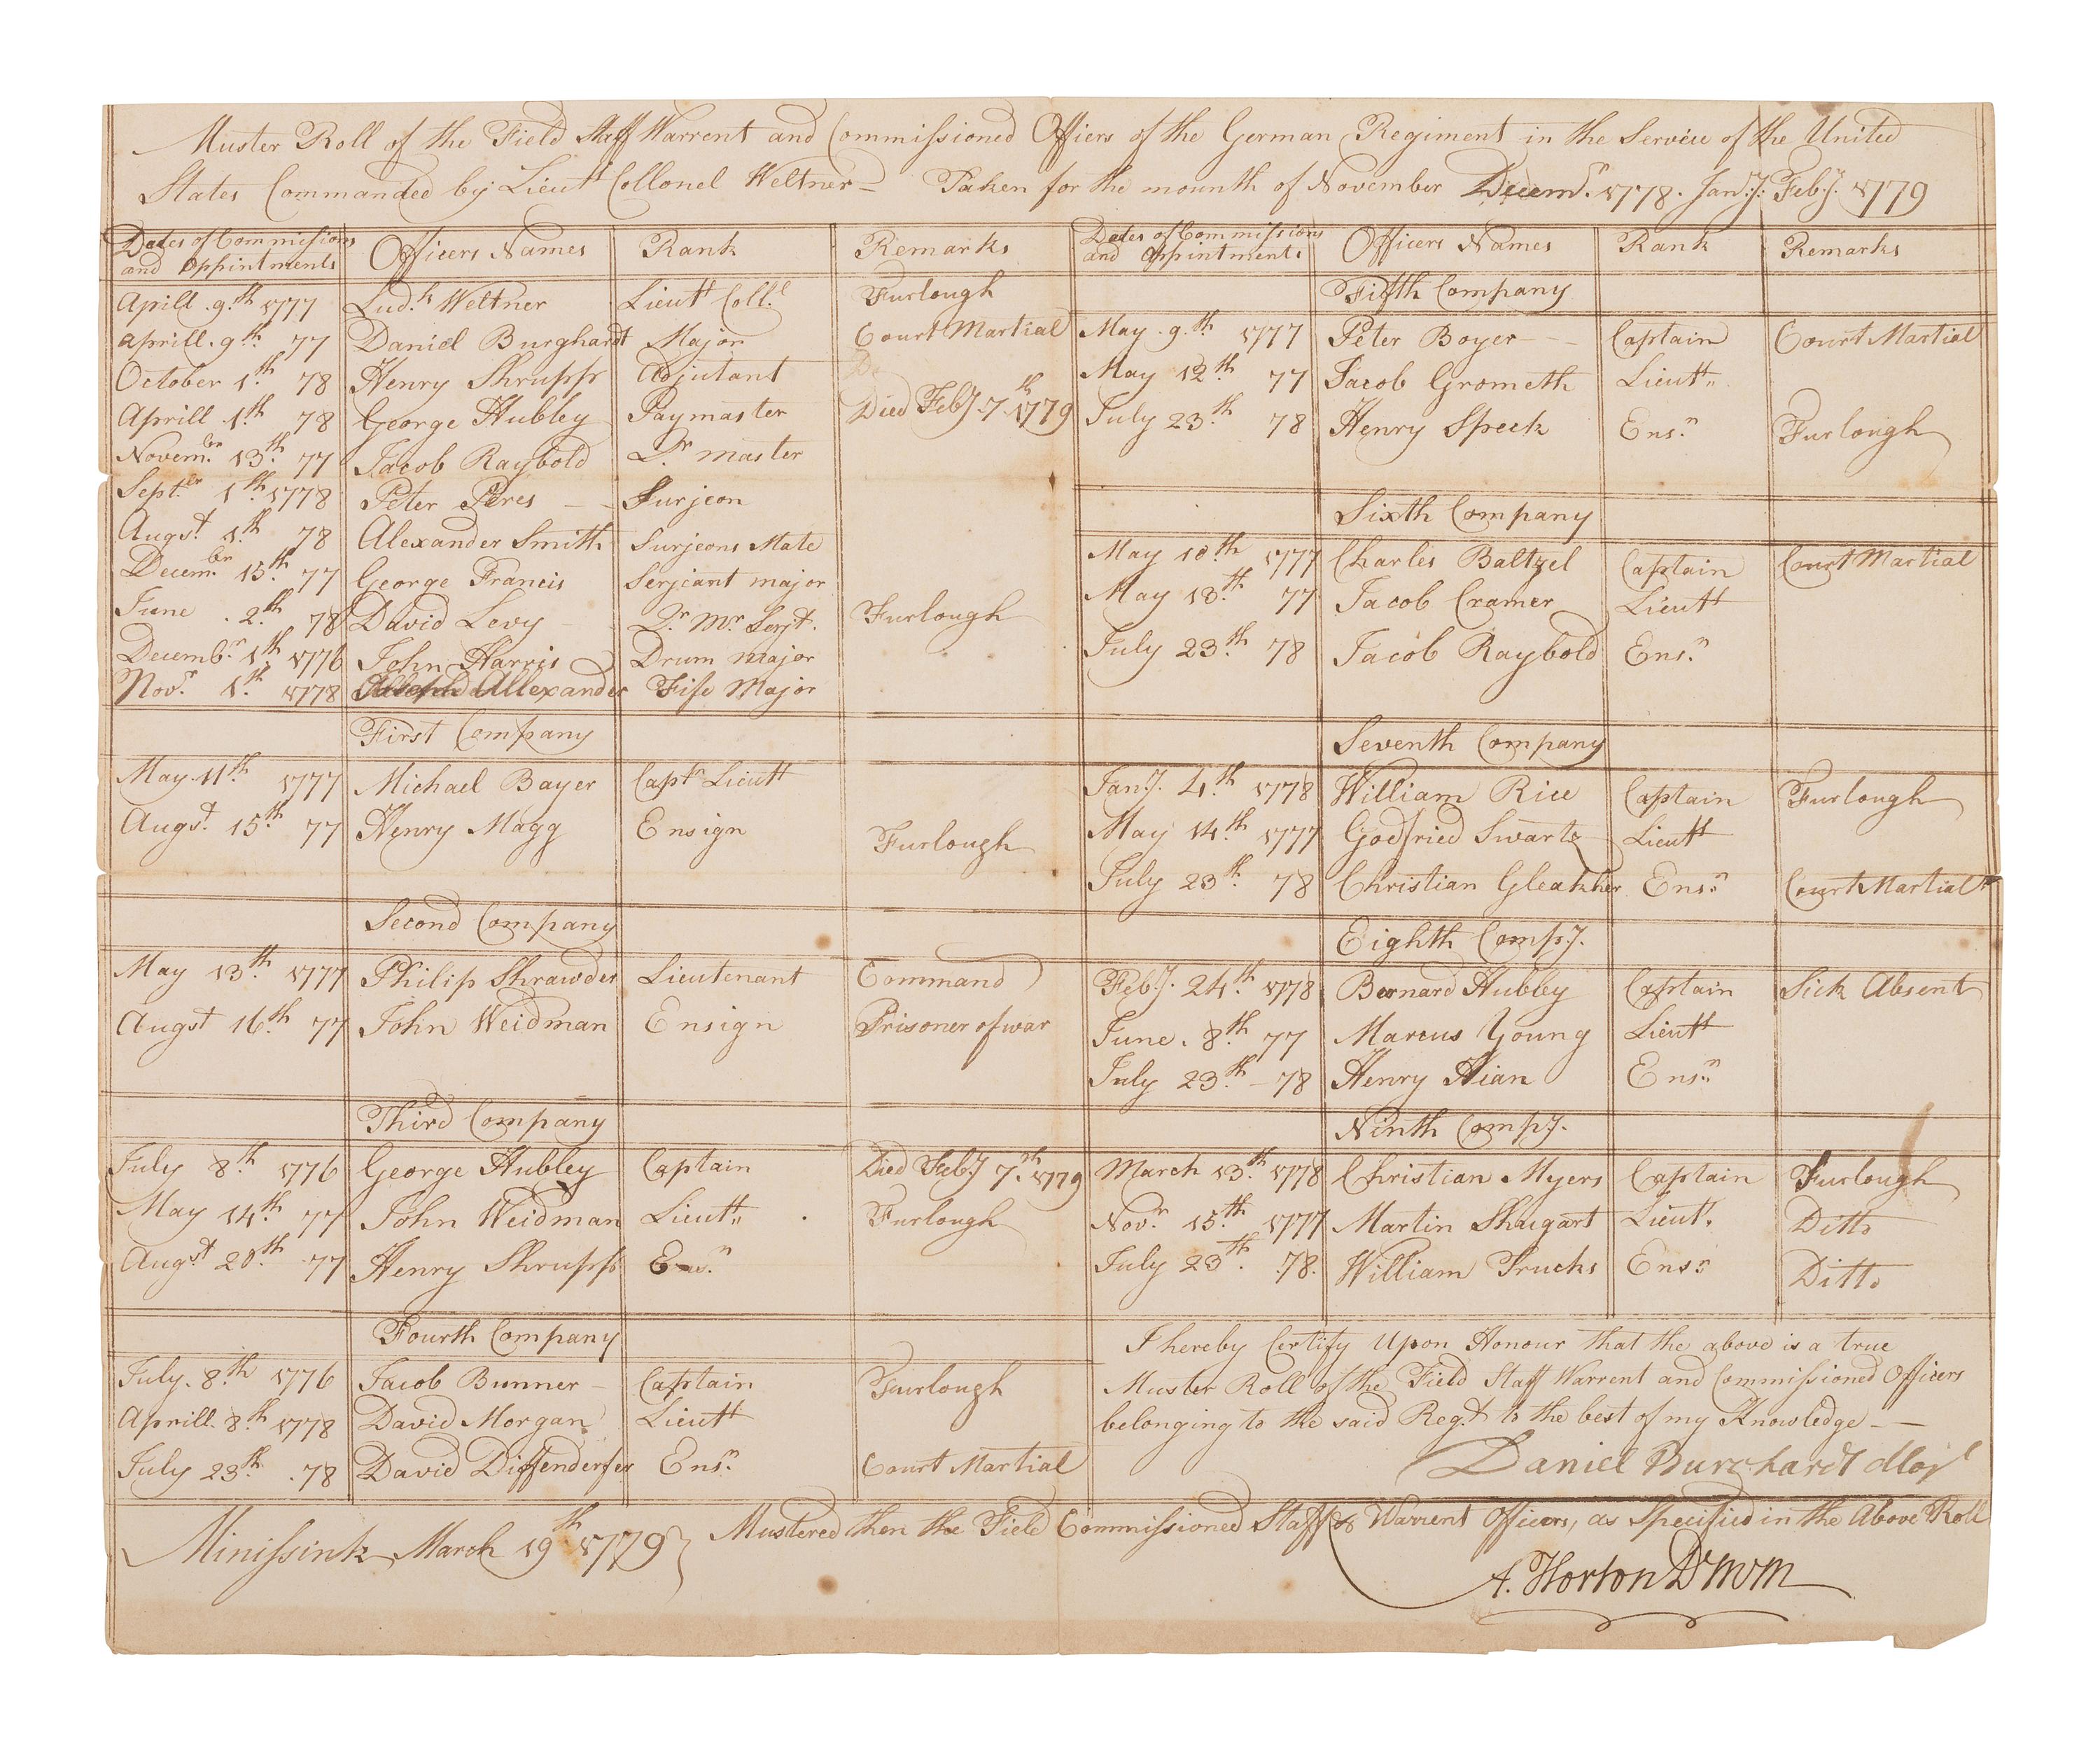 Muster Roll of the Field Staff Warrent and Commissioned Officers of the German Regiment in the Service of the United
States Commanded by Lieut Collonel Weltner – Taken for the mounth of November Decemr. 1778. Jany. Feby. 1779
Dates of Commissions and Appintments Officers Names Rank Remarks
Aprill 9th 1777 Ludk Weltner Lieut Coll. Furlough
Aprill. 9th 77 Daniel Burghardt Major Court Martial
October 1th 78 Henry Shrupp Adjutant Do
Aprill 1th 78 George Hubley Paymaster Died Feby 7th 1779
Novembr 13th 77 Jacob Raybold Qr master
Septer 1th 1778 Peter Peres – Surjeon
Augst 1th 78 Alexander Smith Surjeons Mate
Decembr 15th 77 George Francis Serjeant major
June 2th 78 David Levy Qr Mr Serjt. Furlough
Decembr 1th 1776 John Harris Drum major
Novr 1th 1778 Allexander Fife Major
First Company
May 11th 1777 Michael Bayer Captn Lieutt
Augst 15th 77 Henry Magg Ensign Furlough
Second Company
May 13th 1777 Philip Shrawder Lieutenant Command
Augst 16th 77 John Weidman Ensign Prisoner of war
Third Company
July 8th 1776 George Hubley Captain Died Feby 7th 1779
May 14th 77 John Weidman Lieutt Furlough
Augst 20th 77 Henry Shrupp Ensn
Fourth Company
July 8th 1776 Jacob Bunner – Captain Furlough
Aprill 8th 1778 David Morgan Lieutt
July 23th 78 David Diffenderfer Ensn Court Martial
Dates of Commissions and Appintments Officers Names Rank Remarks
Fifth Company
May 9th 1777 Peter Boyer – – Captain Court Martial
May 12th 77 Jacob Grometh Lieutt
July 23th 78 Henry Speck Ensn Furlough
Sixth Company
May 10th 1777 Charles Baltzel Captain Court Martial
May 13th 77 Jacob Cramer Lieutt
July 23th 78 Jacob Raybold Ensn
Seventh Company
Jany. 4th 1778 William Rice Captain Furlough
May 14th 1777 Godfried Swarts Lieutt
July 23th 78 Christian Gleakher Ensn Court Martial
Eighth Compy.
Feby. 24th 1778 Bernard Hubley Captain Sick Absent
June 8th 77 Marcus Young Lieutt
July 23th – 78 Henry Hian Ensn
Ninth Compy.
March 13th 1778 Christian Myers Captain Furlough
Novr 15th 1777 Martin Shugart Lieut. Ditto
July 23th 78. William Trucks Ensn Ditto
I hereby Certify Upon Honour that the above is a true
Muster Roll of the Field Staff Warrent and Commissioned Officers
belonging to the said Regt to the best of my Knowledge – –
Daniel Burchardt Mojr
Minissink March 19th 1779 } Mustered then the Field Commissioned Staff & Warrent Officers, as Specified in the Above Roll
A. Horton D M M